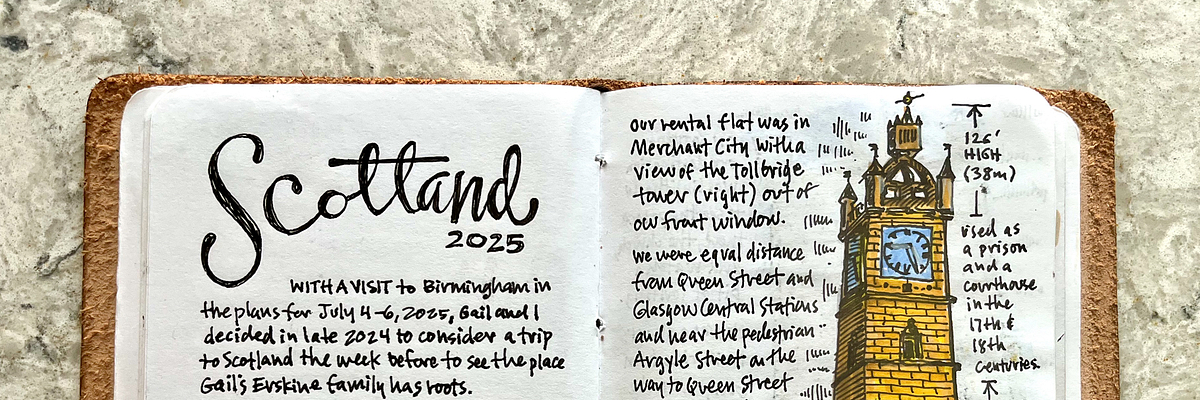 Scotland
2025
WITH A VISIT to Birmingham in
the plans for July 4-6, 2025, Gail and I
decided in late 2024 to consider a trip
to Scotland the week before to see the place
Gail's Erskine family has roots.
our rental flat was in
Merchant City with a
view of the Tolbridge
tower (right) out of
our front window.
we were equal distance
from Queen Street and
Glasgow Central Stations
and near the pedestrian
Argyle Street on the
way to Queen Street
126'
HIGH
(38m)
used as
a prison
and a
courthouse
in the
17th &
18th
centuries.